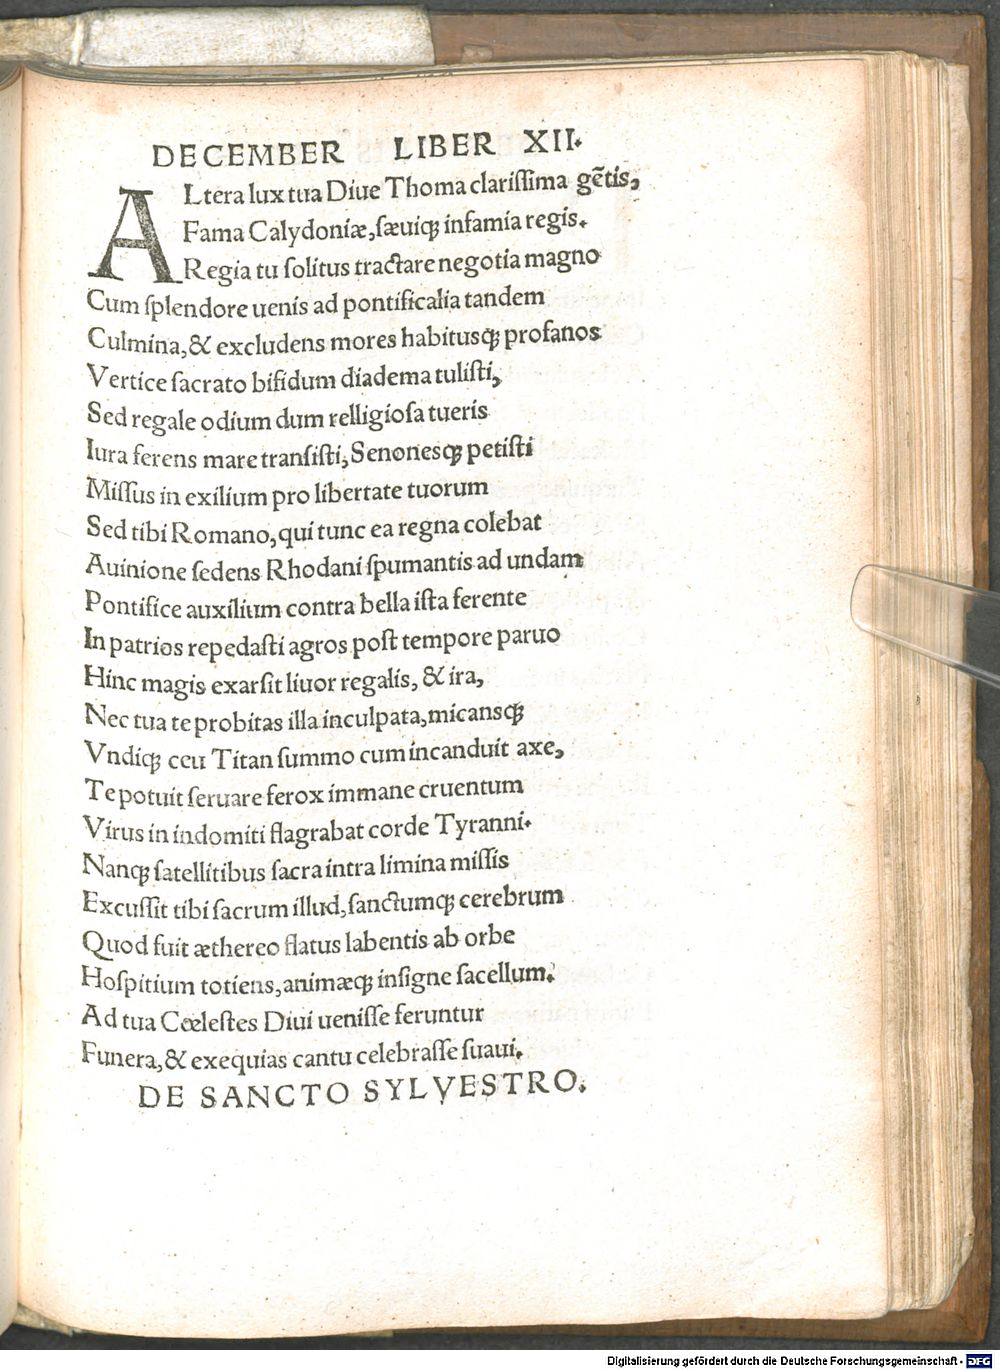 DECEMBER LIBER XII.
ALtera lux tua Diue Thoma clariſſima gẽtis,
Fama Calydoniæ, ſæuiqꝫ infamia regis.
Regia tu ſolitus tractare negotia magno
Cum ſplendore uenis ad pontificalia tandem
Culmina, & excludens mores habitusqꝫ profanos
Vertice ſacrato bifidum diadema tuliſti,
Sed regale odium dum relligioſa tueris
Iura ferens mare tranſiſti, Senonesqꝫ petiſti
Miſſus in exilium pro libertate tuorum
Sed tibi Romano, qui tunc ea regna colebat
Auinione ſedens Rhodani ſpumantis ad undam
Pontifice auxilium contra bella iſta ferente
In patrios repedaſti agros poſt tempore paruo
Hinc magis exarſit liuor regalis, & ira,
Nec tua te probitas illa inculpata, micansqꝫ
Vndiqꝫ ceu Titan ſummo cum incanduit axe,
Te potuit ſeruare ferox immane cruentum
Virus in indomiti flagrabat corde Tyranni.
Nanqꝫ ſatellitibus ſacra intra limina miſſis
Excuſſit tibi ſacrum illud, ſanctumqꝫ cerebrum
Quod fuit æthereo flatus labentis ab orbe
Hoſpitium totiens, animæqꝫ inſigne ſacellum.
Ad tua Cœleſtes Diui ueniſſe feruntur
Funera, & exequias cantu celebraſſe ſuaui.
DE SANCTO SYLVESTRO.
Digitalisierung gefördert durch die Deutsche Forschungsgemeinschaft - DFG